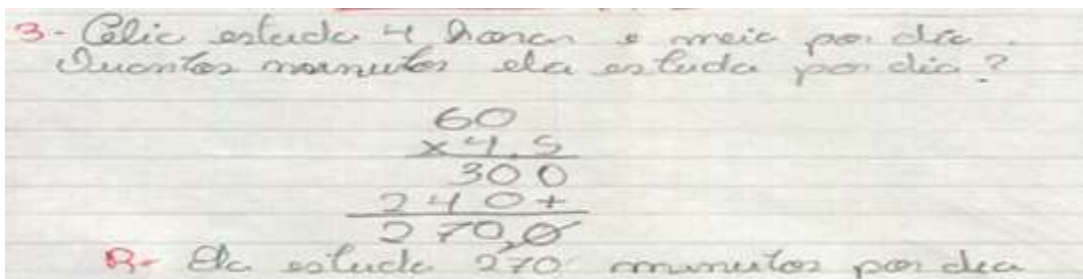 3- Célia estuda 4 horas e meia por dia.
Quantos minutos ela estuda por dia?
60
x4,5
300
240+
270,0
R- Ela estuda 270 minutos por dia